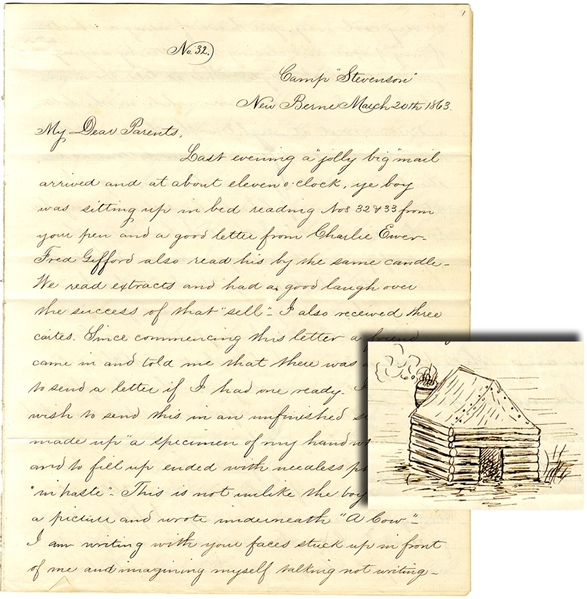 1
No. 32.
Camp "Stevenson"
New Berne March 20th 1863.
My Dear Parents,
Last evening a "jolly big" mail
arrived and at about eleven o'clock, ye boy
was sitting up in bed reading Nos 32 & 33 from
your pen and a good letter from Charlie Ewer-
Fred Gifford also read his by the same candle-
We read extracts and had a good laugh over
the success of that "sell"- I also received three
cartes. Since commencing this letter a friend
came in and told me that there was
to send a letter if I had one ready.
wish to send this in an unfinished
made up "a specimen of my hand
and to fill up ended with needless
"in haste". This is not unlike the boy
a picture and wrote underneath "A Cow"-
I am writing with your faces stuck up in front
of me and imagining myself talking not writing-